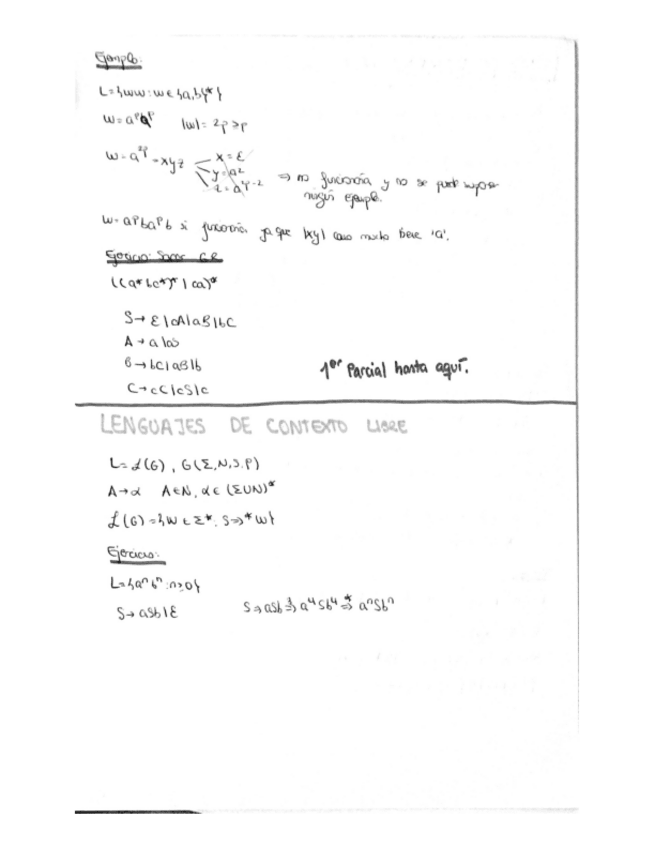 Ejemplo:
L={ww: w∈{a,b}*}
w=a^p a^p |w|= 2p ≥p
w=a^2p=xyz x=ε
y=a²
z=a^2p-2
⇒ no funcionaría y no se puede
ningún ejemplo.
w=a^p b a^p b sí funcionaría ya que |xy| como mucho tiene 'a'.
Ejercicio: Sacar G.R
((a*bc*)*|ca)*
S→ ε|cA|aB|bC
A→ a|as
B→bC|aB|b
C→cC|cS|c
1er Parcial hasta aquí.
LENGUAJES DE CONTEXTO LIBRE
L=ℒ(G), G(Σ,N,S,P)
A→α A∈N, α∈(Σ∪N)*
ℒ(G)={w∈Σ*: S⇒*w}
Ejercicio:
L={aⁿbⁿ: n≥0}
S→aSb|ε S⇒aSb ³⇒ a⁴Sb⁴ *⇒ aⁿSbⁿ